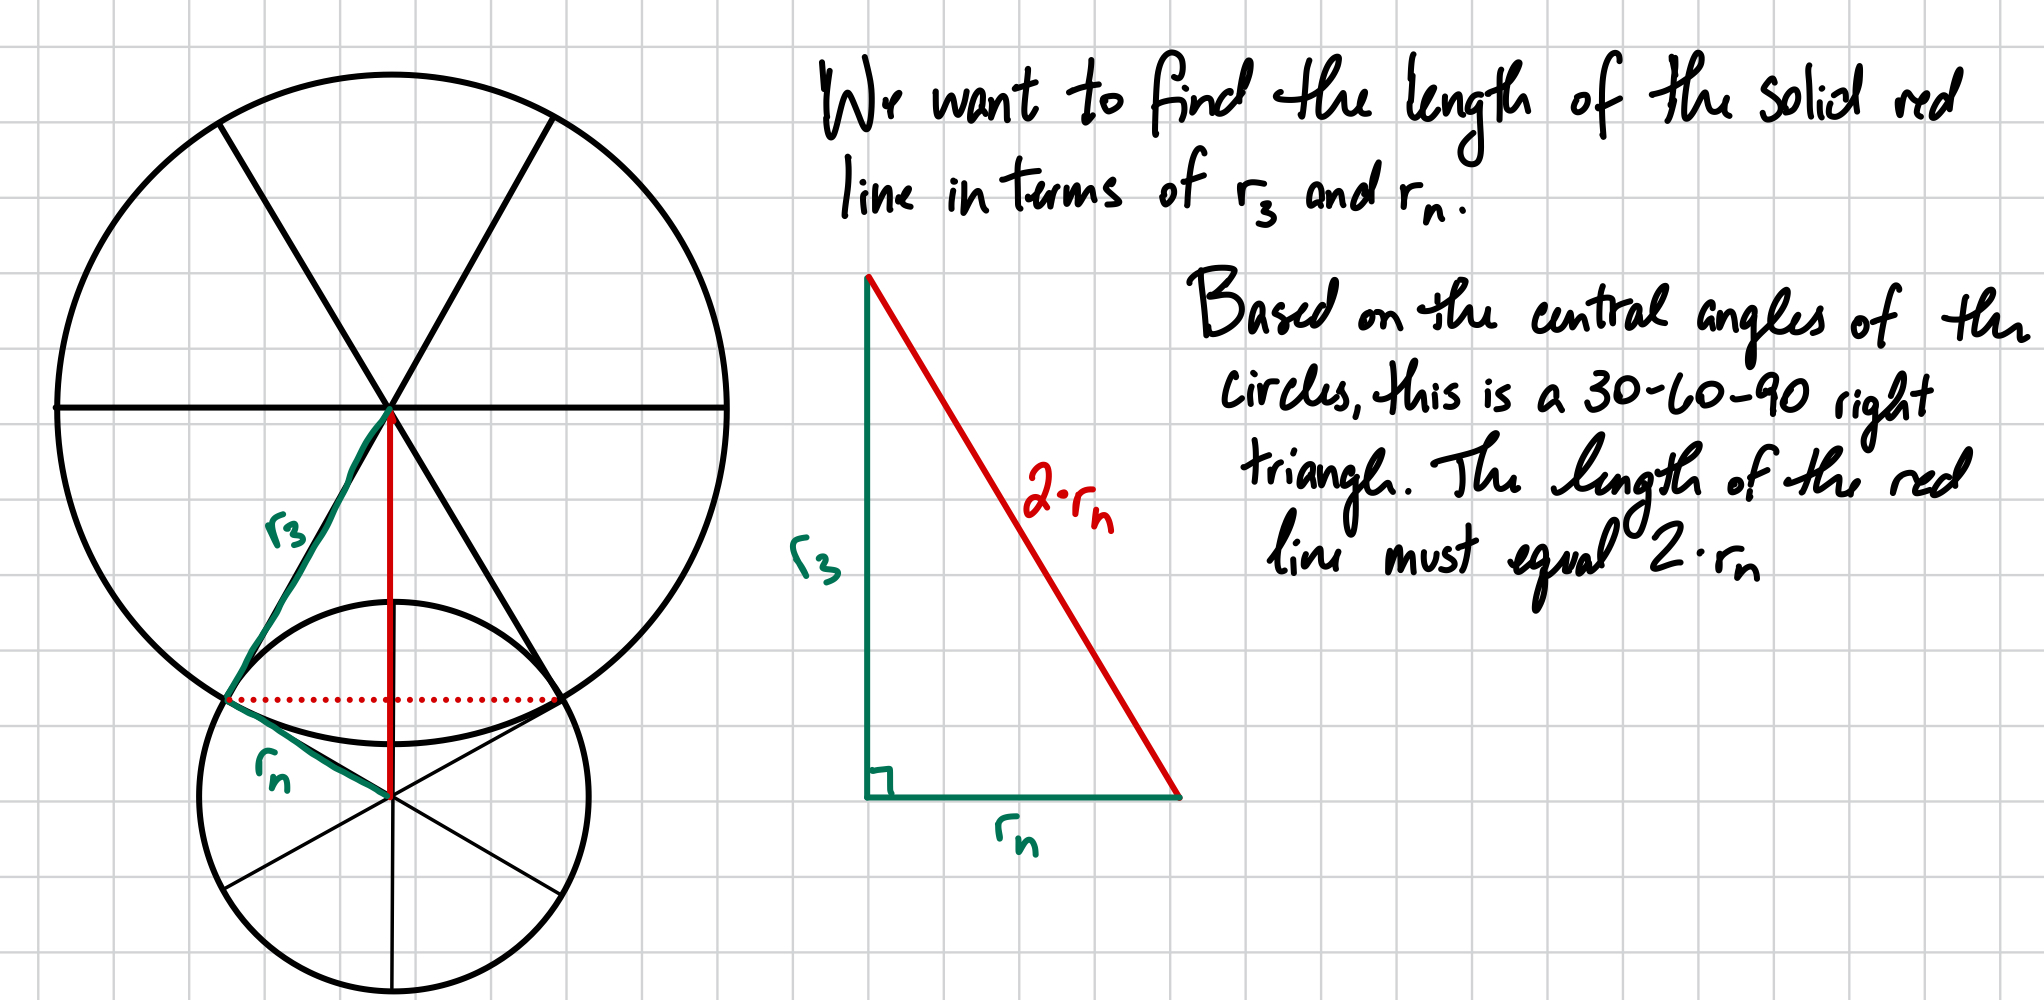 We want to find the length of the solid red
line in terms of r₃ and rₙ.
Based on the central angles of the
circles, this is a 30-60-90 right
triangle. The length of the red
line must equal 2·rₙ
r₃
rₙ
r₃
2·rₙ
rₙ